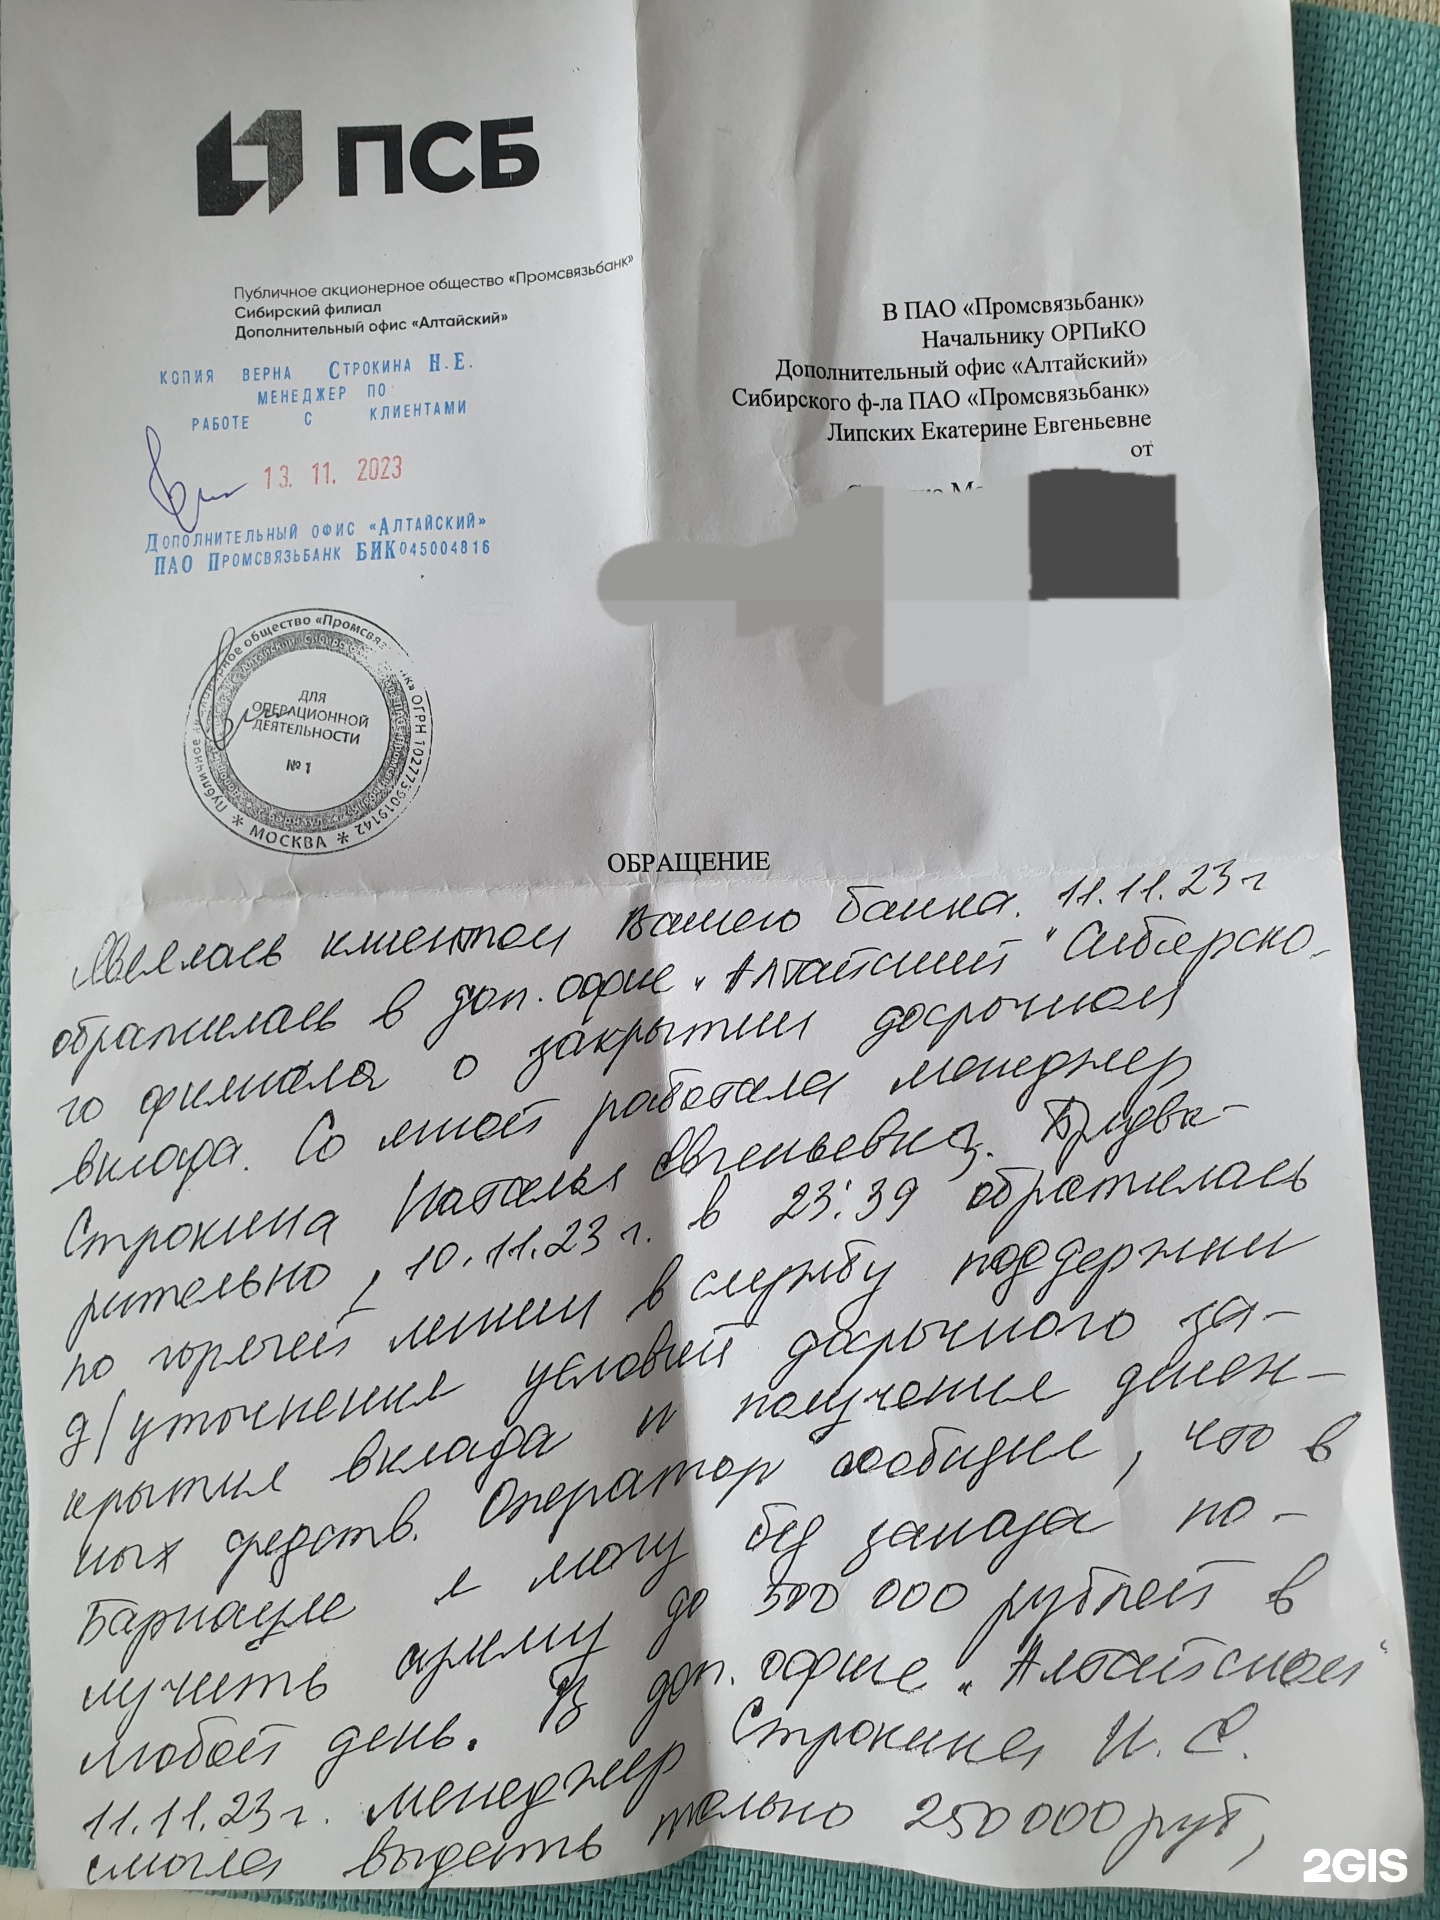 ПСБ
Публичное акционерное общество «Промсвязьбанк»
Сибирский филиал
Дополнительный офис «Алтайский»
КОПИЯ ВЕРНА СТРОКИНА Н.Е.
МЕНЕДЖЕР ПО
РАБОТЕ С КЛИЕНТАМИ
13. 11. 2023
ДОПОЛНИТЕЛЬНЫЙ ОФИС «АЛТАЙСКИЙ»
ПАО ПРОМСВЯЗЬБАНК БИК045004816
В ПАО «Промсвязьбанк»
Начальнику ОРПиКО
Дополнительный офис «Алтайский»
Сибирского ф-ла ПАО «Промсвязьбанк»
Липских Екатерине Евгеньевне
от
Публичное общество «Промсвяз ОГРН 1027739019142
* МОСКВА *
ДЛЯ
ОПЕРАЦИОННОЙ
ДЕЯТЕЛЬНОСТИ
№ 1
ОБРАЩЕНИЕ
Являясь клиентом Вашего банка. 11.11.23 г
обратилась в доп. офис „Алтайский" Сибирско-
го филиала о закрытии досрочном
вклада. Со мной работала менеджер
Строкина Наталья Евгеньевна. Предва-
рительно, 10.11.23 г. в 23:39 обратилась
по горячей линии в службу поддержки
д/уточнения условий досрочного за-
крытия вклада и получения денеж-
ных средств. Оператор сообщил, что в
Барнауле я могу без заказа по-
лучить сумму до 500 000 рублей в
любой день. В доп. офисе „Алтайском"
11.11.23 г. менеджер Строкина Н. Е.
смогла выдать только 250000 руб,
2GIS